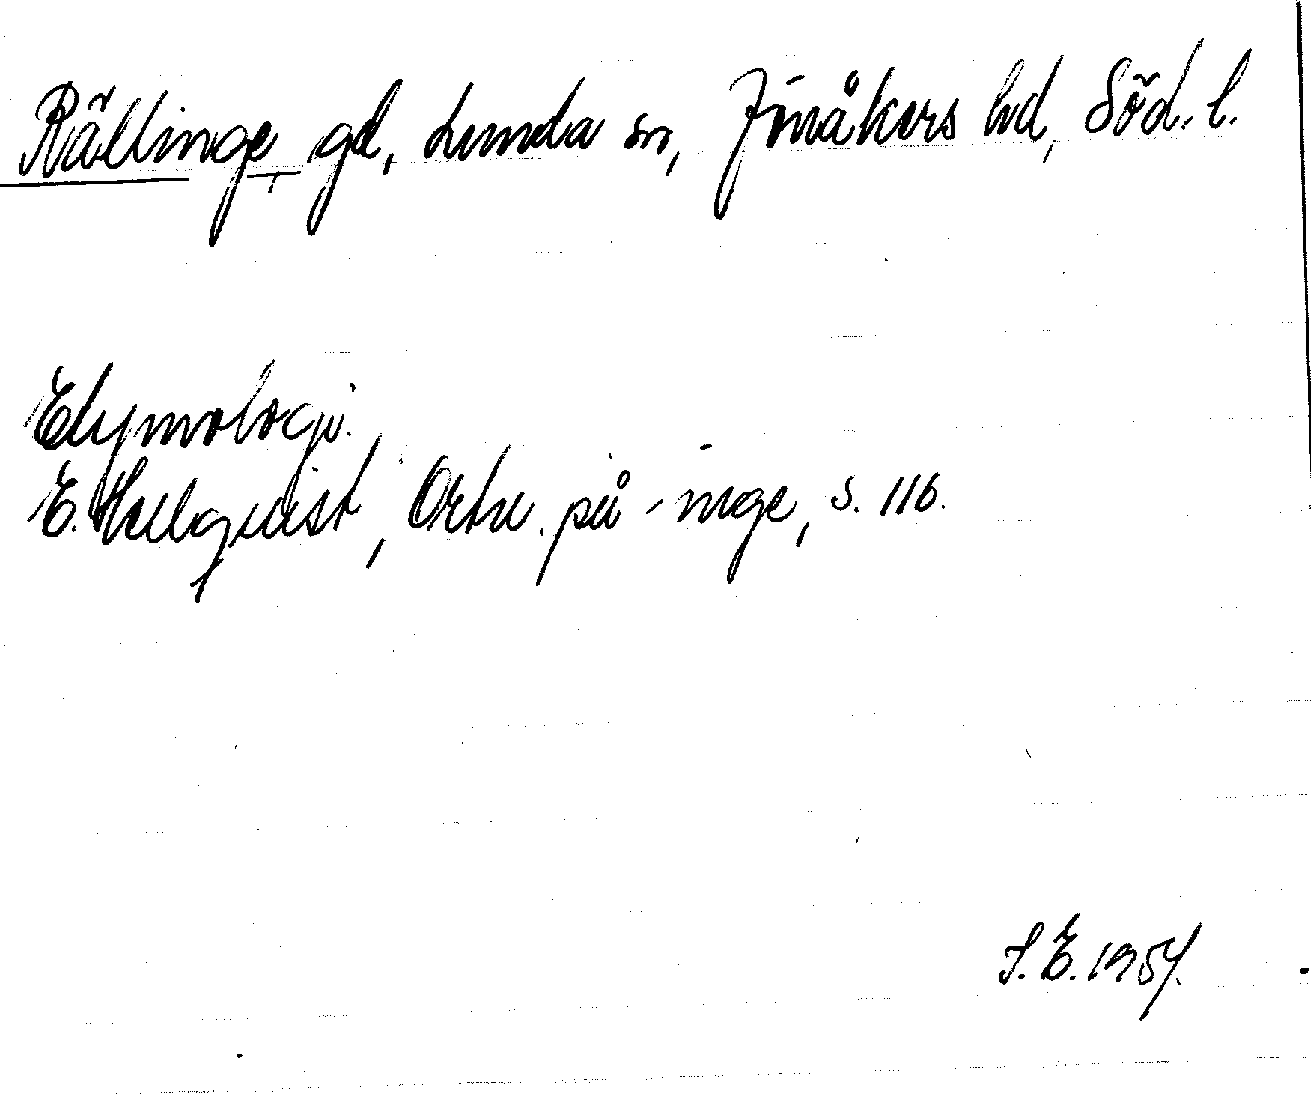 Rällinge, gd, Lunda sn, Jönåkers hd, Söd. l.
Etymologi.
E. Hellquist, Ortn. på -inge, s. 116.
S. E. 1954.